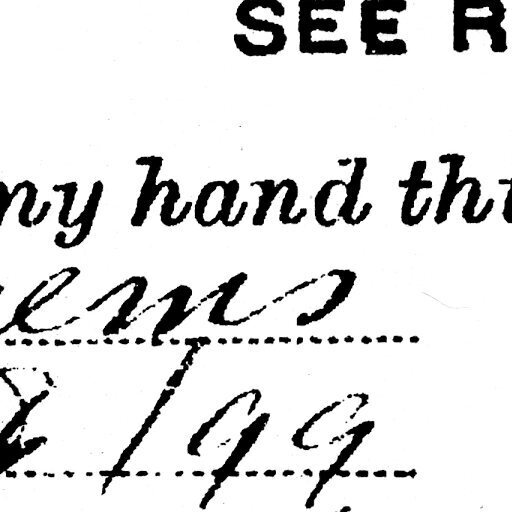 SEE R
my hand thi
ems
8/99